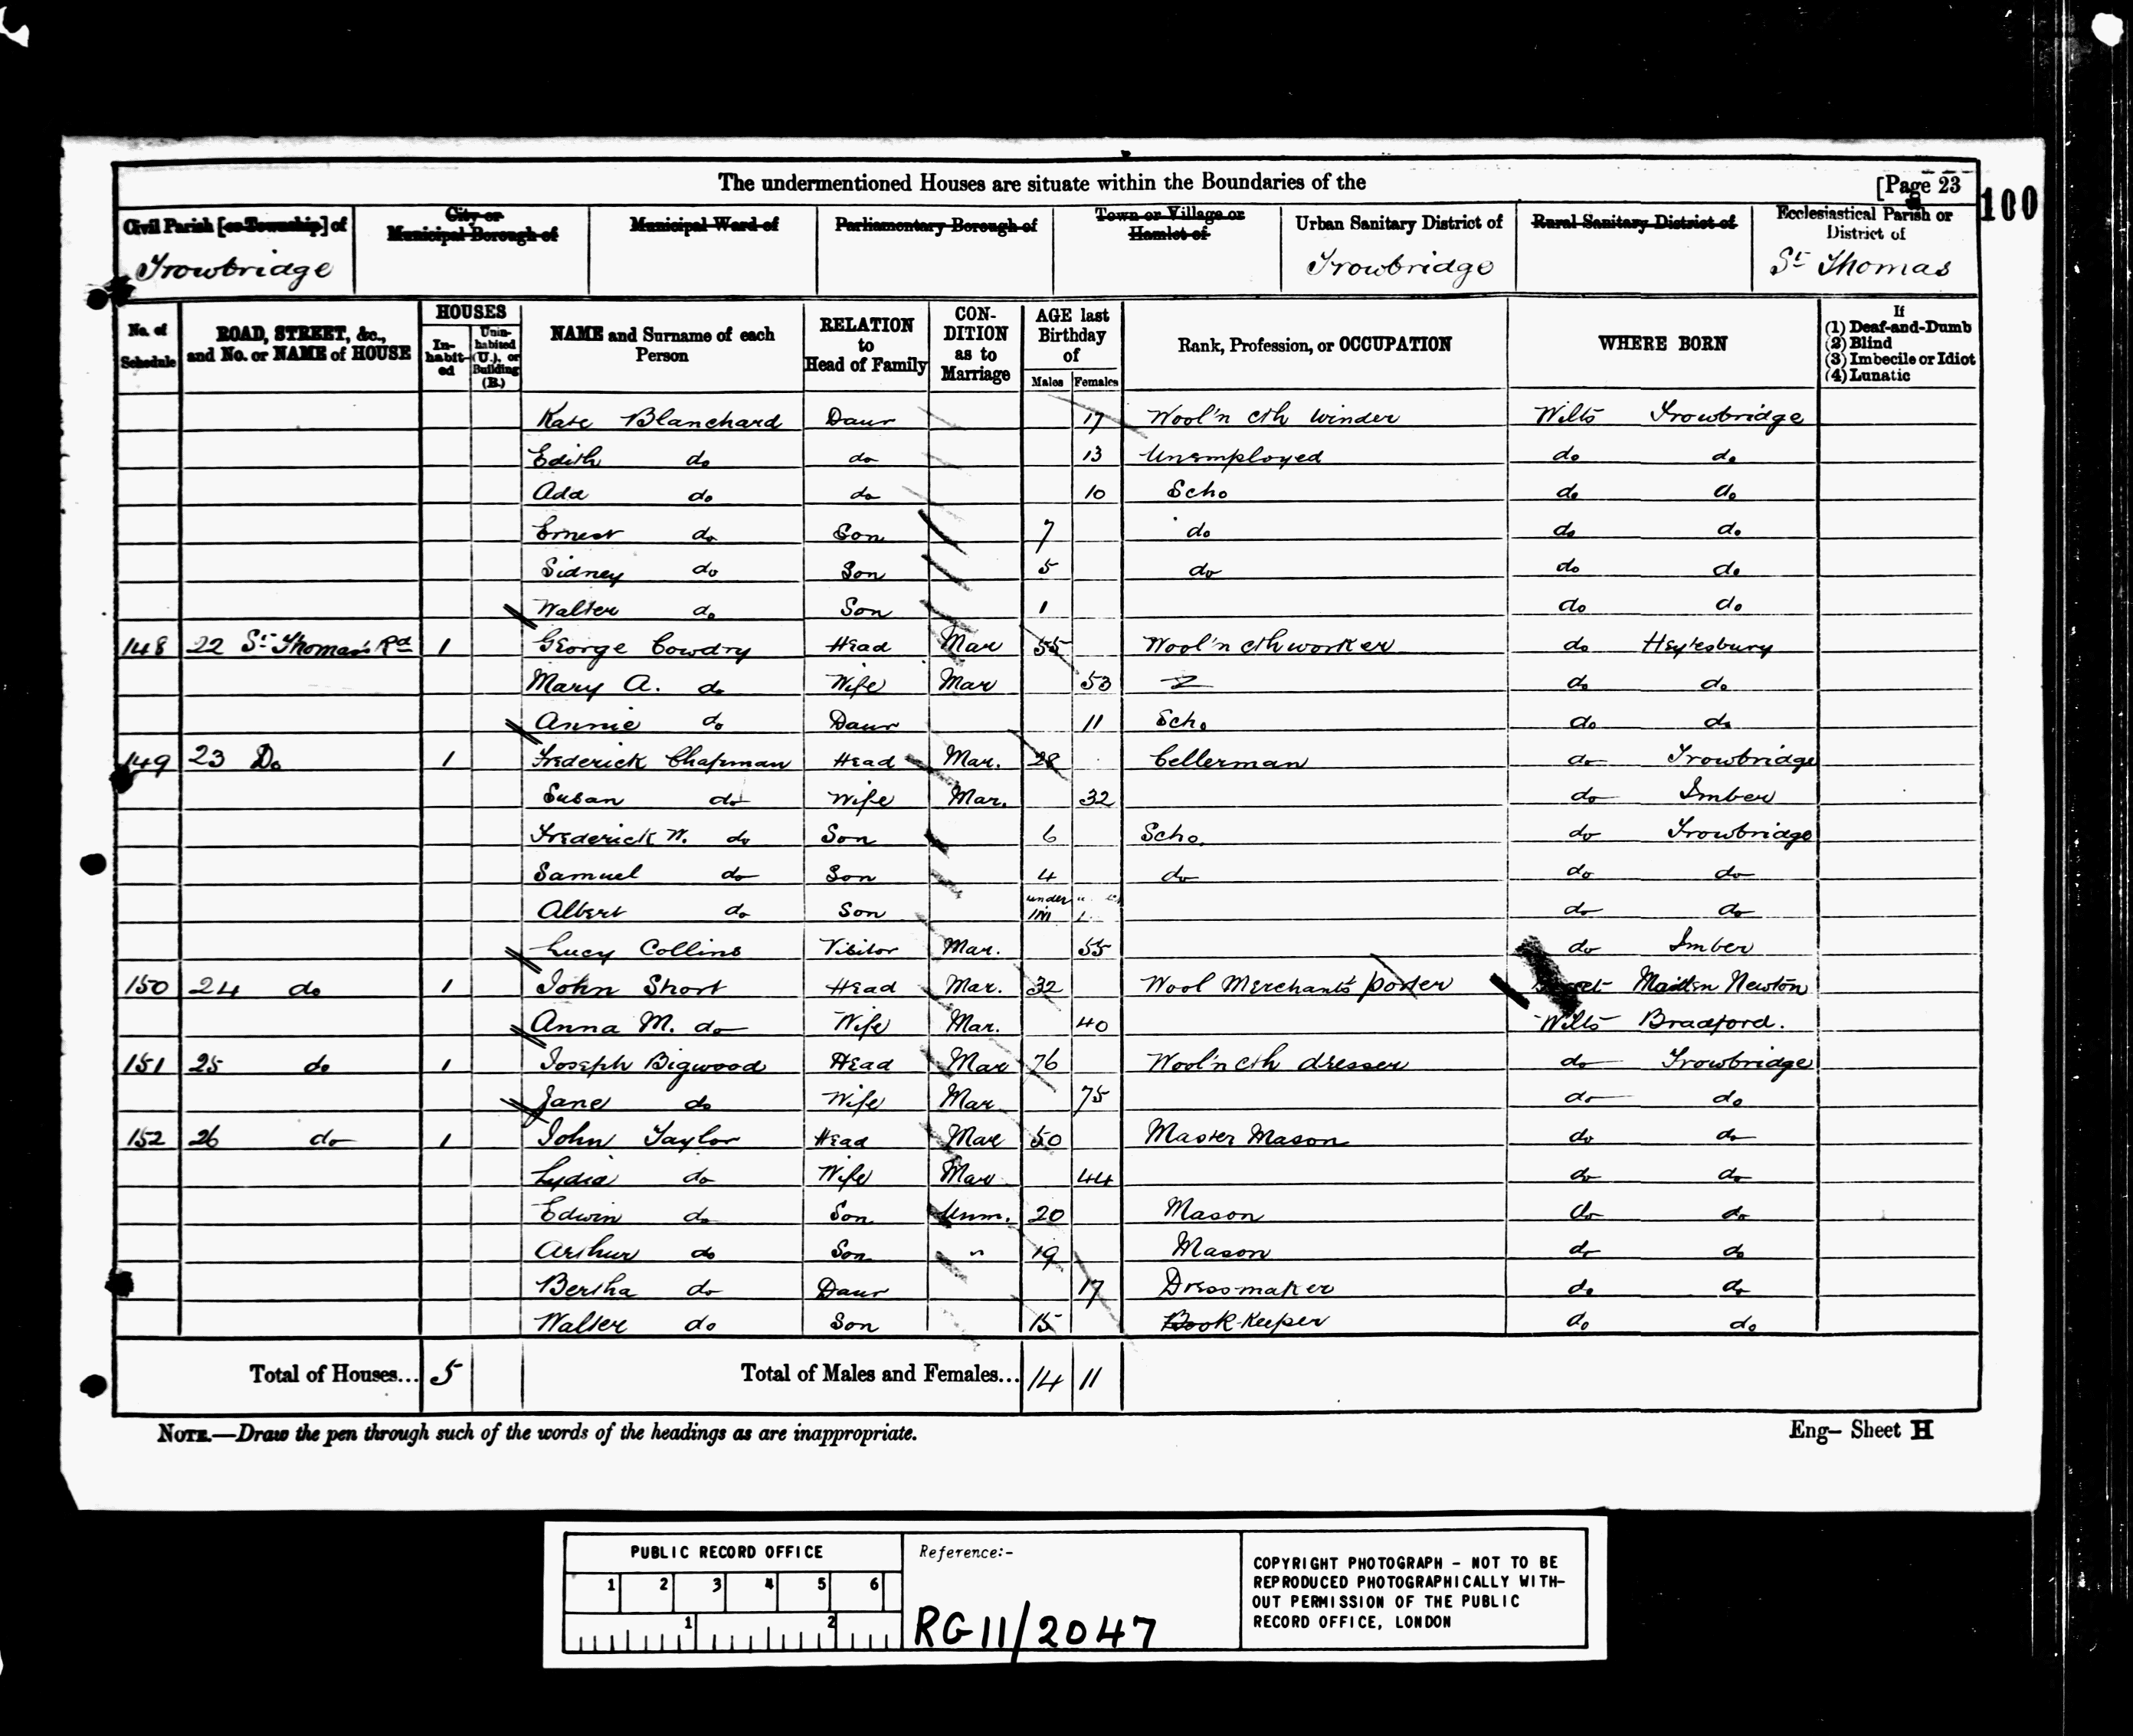 The undermentioned Houses are situate within the Boundaries of the [Page 23 100
Civil Parish [or Township] of City or Municipal Borough of Municipal Ward of Parliamentary Borough of Town or Village or Hamlet of Urban Sanitary District of Rural Sanitary District of Ecclesiastical Parish or District of
Trowbridge Trowbridge St Thomas
No. of Schedule ROAD, STREET, &c., and No. or NAME of HOUSE HOUSES Inhabited Uninhabited (U.), or Building (B.) NAME and Surname of each Person RELATION to Head of Family CONDITION as to Marriage AGE last Birthday of Males Females Rank, Profession, or OCCUPATION WHERE BORN If (1) Deaf-and-Dumb (2) Blind (3) Imbecile or Idiot (4) Lunatic
Kate Blanchard Daur 17 Wool'n cth winder Wilts Trowbridge
Edith do do 13 Unemployed do do
Ada do do 10 Scho do do
Ernest do Son 7 do do do
Sidney do Son 5 do do do
Walter do Son 1 do do
148 22 St Thomas's Rd 1 George Cowdry Head Mar 55 Wool'n cth worker do Heytesbury
Mary A. do Wife Mar 53 do do
Annie do Daur 11 Scho do do
149 23 Do 1 Frederick Chapman Head Mar. 28 Cellerman do Trowbridge
Susan do Wife Mar. 32 do Imber
Frederick W. do Son 6 Scho. do Trowbridge
Samuel do Son 4 do do do
Albert do Son under 1m do do
Lucy Collins Visitor Mar. 55 do Imber
150 24 do 1 John Short Head Mar. 32 Wool Merchant's porter Maiden Newton
Anna M. do Wife Mar. 40 Wilts Bradford.
151 25 do 1 Joseph Bigwood Head Mar 76 Wool'n cth dresser do Trowbridge
Jane do Wife Mar 75 do do
152 26 do 1 John Taylor Head Mar 50 Master Mason do do
Lydia do Wife Mar 44 do do
Edwin do Son Unm. 20 Mason do do
Arthur do Son " 19 Mason do do
Bertha do Daur 17 Dress-maker do do
Walter do Son 15 Book-Keeper do do
Total of Houses... 5 Total of Males and Females... 14 11
NOTE.—Draw the pen through such of the words of the headings as are inappropriate. Eng– Sheet H
PUBLIC RECORD OFFICE
1 2 3 4 5 6
1 2
Reference:-
RG 11/2047
COPYRIGHT PHOTOGRAPH – NOT TO BE
REPRODUCED PHOTOGRAPHICALLY WITH-
OUT PERMISSION OF THE PUBLIC
RECORD OFFICE, LONDON